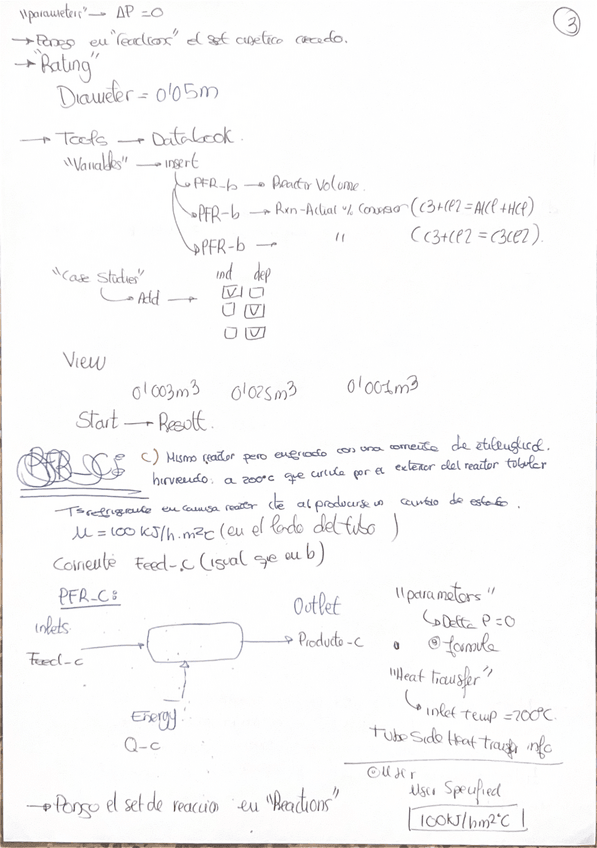 "parameters" → ΔP = 0
3
→ Pongo en "reactions" el set cinetico creado.
→ "Rating"
Diameter = 0'05m
→ Tools → Databook.
"Variables" → insert
PFR-b → Reactor Volume.
PFR-b → Rxn-Actual % Conversor (C3+Cl2 = AlCl + HCl)
PFR-b → " (C3+Cl2 = C3Cl2).
"Case Studies" ind dep
Add →
View
0'003m3 0'025m3 0'001m3
Start → Result.
c) Mismo reactor pero enfriado con una corriente de etilenglicol.
hirviendo. a 200°C que circula por el exterior del reactor tubular
T= refrigerante en camisa reactor cte al producirse un cambio de estado.
U = 100 KJ/h.m2°C (en el lado del tubo)
Corriente Feed-c (igual que en b)
PFR-C:
inlets
Feed-c
Outlet
Producto-c
Energy
Q-c
"parameters"
Delta P = 0
formula
"Heat transfer"
inlet temp = 200°C.
Tube Side Heat Transfer info
User
User Specified
100KJ/hm2°C
→ Pongo el set de reaccion en "Reactions"